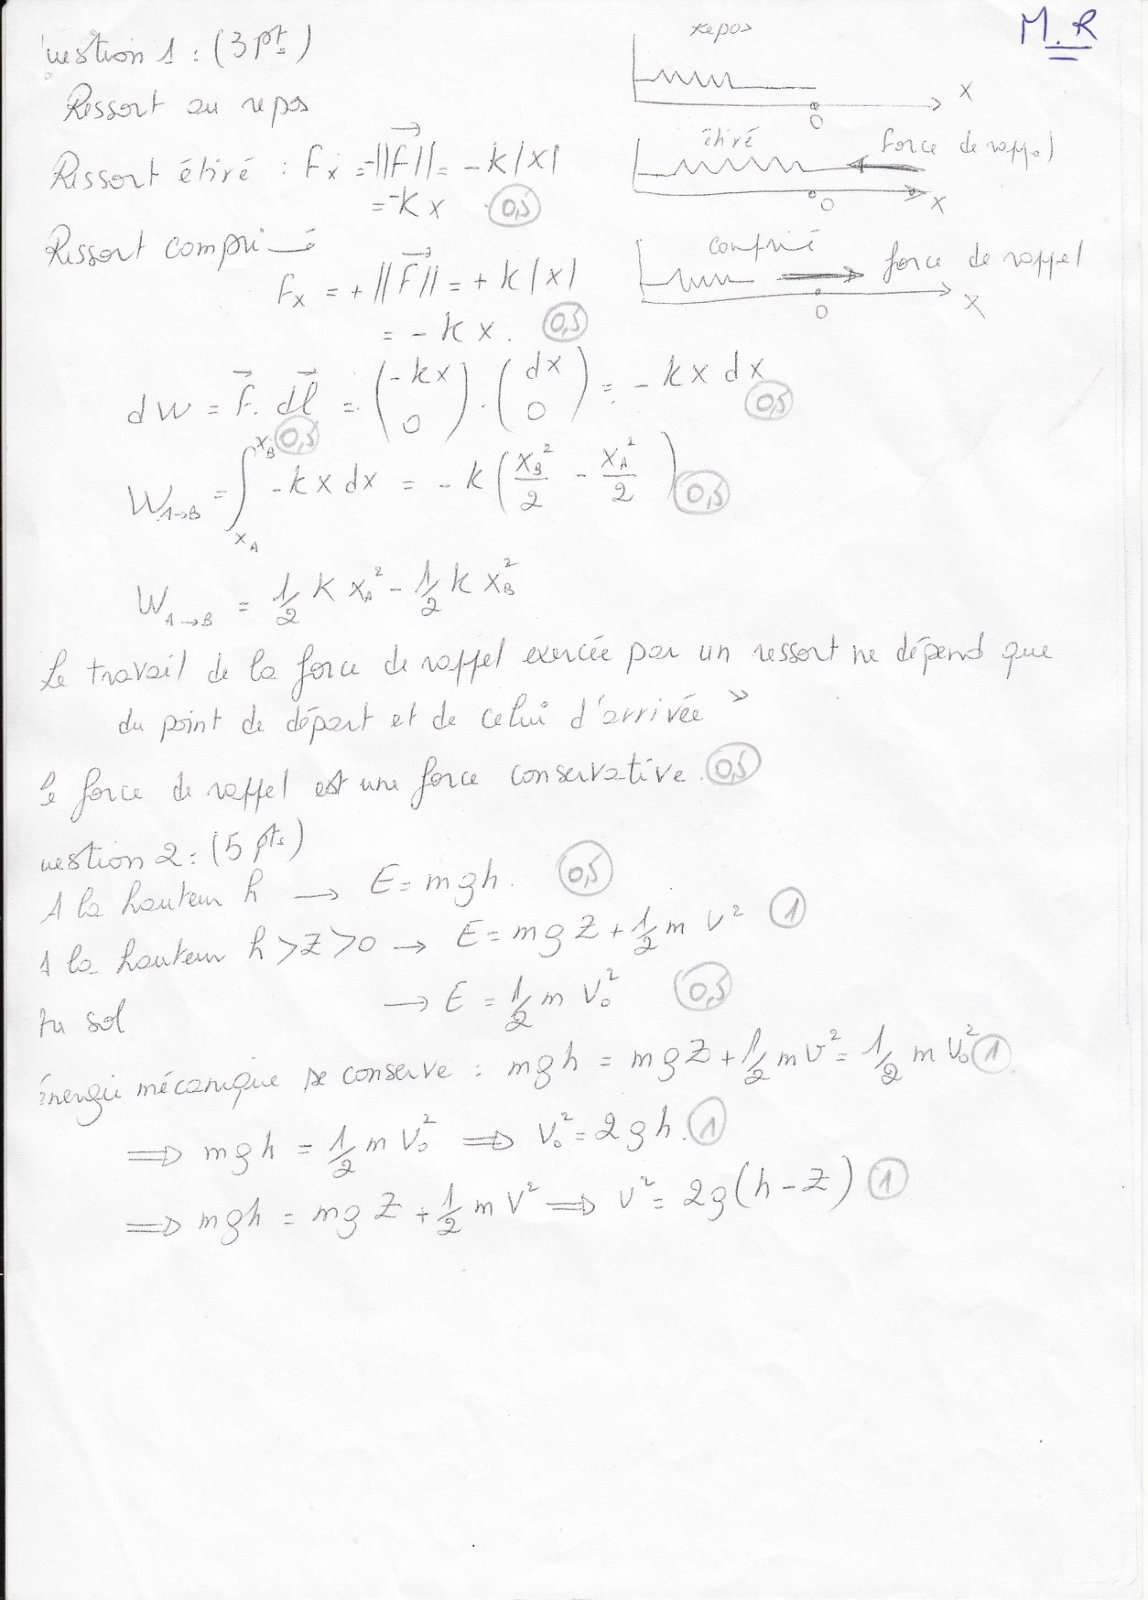 M.R
uestion 1 : (3 pts)
Ressort au repos
repos
x
O
Ressort étiré : Fx = -||F|| = -k|x|
= -k x 0,5
étiré
Force de rappel
O
x
Ressort comprimé
Fx = + ||F|| = + k|x|
= - k x . 0,5
comprimé
force de rappel
O
x
dW = F . dl = (-kx 0) . (dx 0) = - kx dx
0,5 0,5
W1→B = ∫ xA xB - k x dx = - k (xB²/2 - xA²/2) 0,5
W1→B = 1/2 k xA² - 1/2 k xB²
Le travail de la force de rappel exercée par un ressort ne dépend que
du point de départ et de celui d'arrivée »
force de rappel est une force conservative. 0,5
uestion 2 : (5 pts)
A la hauteur h → E = mgh . 0,5
à la hauteur h > Z > 0 → E = mg Z + 1/2 m v² 1
au sol → E = 1/2 m V0² 0,5
énergie mécanique se conserve : mgh = mgZ + 1/2 m v² = 1/2 m V0² 1
⇒ mgh = 1/2 m V0² ⇒ V0² = 2gh . 1
⇒ mgh = mg Z + 1/2 m V² ⇒ v² = 2g(h - Z) 1